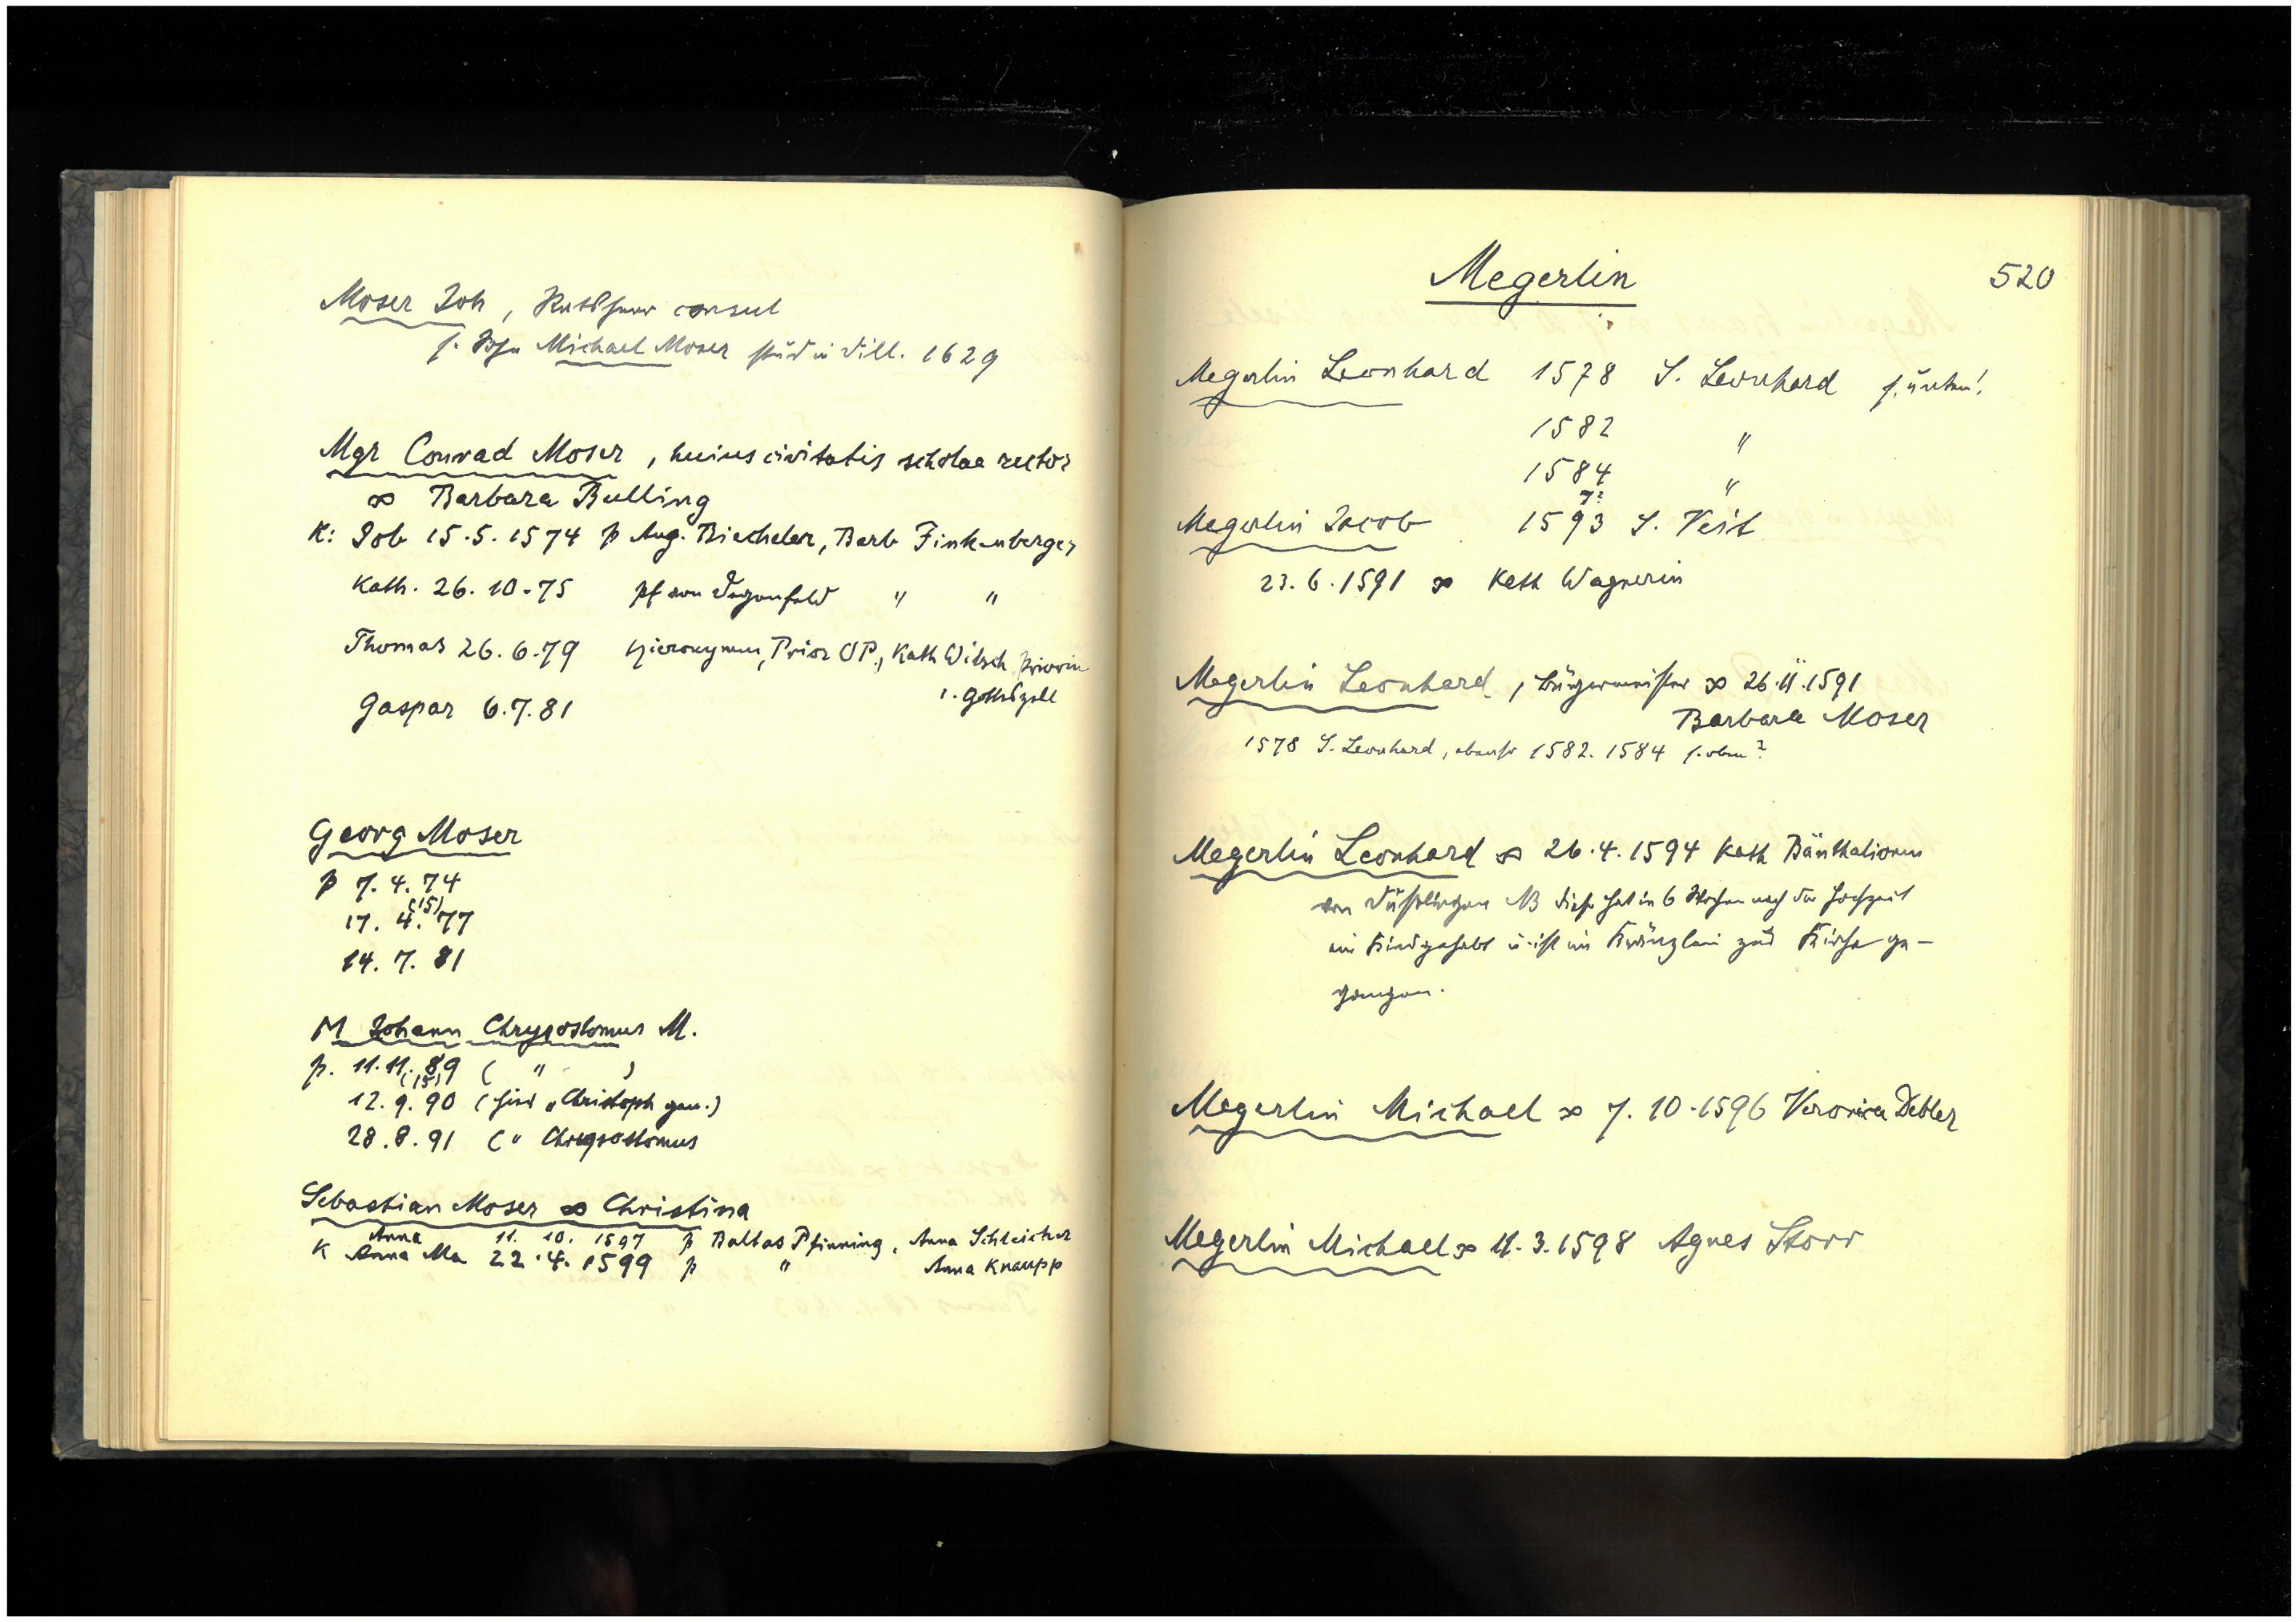 Moser Joh, Ratsherr consul
s. Sohn Michael Moser stud in Dill. 1629
Mgr Conrad Moser, huius civitatis scholae rector
∞ Barbara Bulling
K: Job 15.5.1574 p Aug. Biecheler, Barb Finkenberger
Kath. 26.10.75 pf von Degenfeld " "
Thomas 26.6.79 Hieronymus, Prior OP., Kath Witsch Priorin
i. Gottszell
Gaspar 6.7.81
Georg Moser
p 7.4.74
(15)
17.4.77
14.7.81
M Johann Chrysostomus M.
p. 11.11.89 ( " )
(15)
12.9.90 (hier "Christoph gen.)
28.8.91 ( " Chrysostomus
Sebastian Moser ∞ Christina
Anna 11. 10. 1597 p Baltas Pfinning, Anna Schleicher
K Anna Ma 22.4.1599 p " Anna Knaupp
Megerlin 520
Megerlin Leonhard 1578 S. Leonhard s. unten!
1582 "
1584 "
7?
Megerlin Jacob 1593 S. Veit
23.6.1591 ∞ Kath Wagnerin
Megerlin Leonhard, Bürgermeister ∞ 26.11.1591
Barbara Moser
1578 S. Leonhard, ebenso 1582. 1584 s. oben?
Megerlin Leonhard ∞ 26.4.1594 Kath Bänthalionin
von Dußlingen NB diese hat in 6 Wochen nach der Hochzeit
ein Kind gehabt u. ist im Kränzlein zur Kirche ge-
gangen.
Megerlin Michael ∞ 7.10.1596 Veronica Debler
Megerlin Michael ∞ 11.3.1598 Agnes Storr